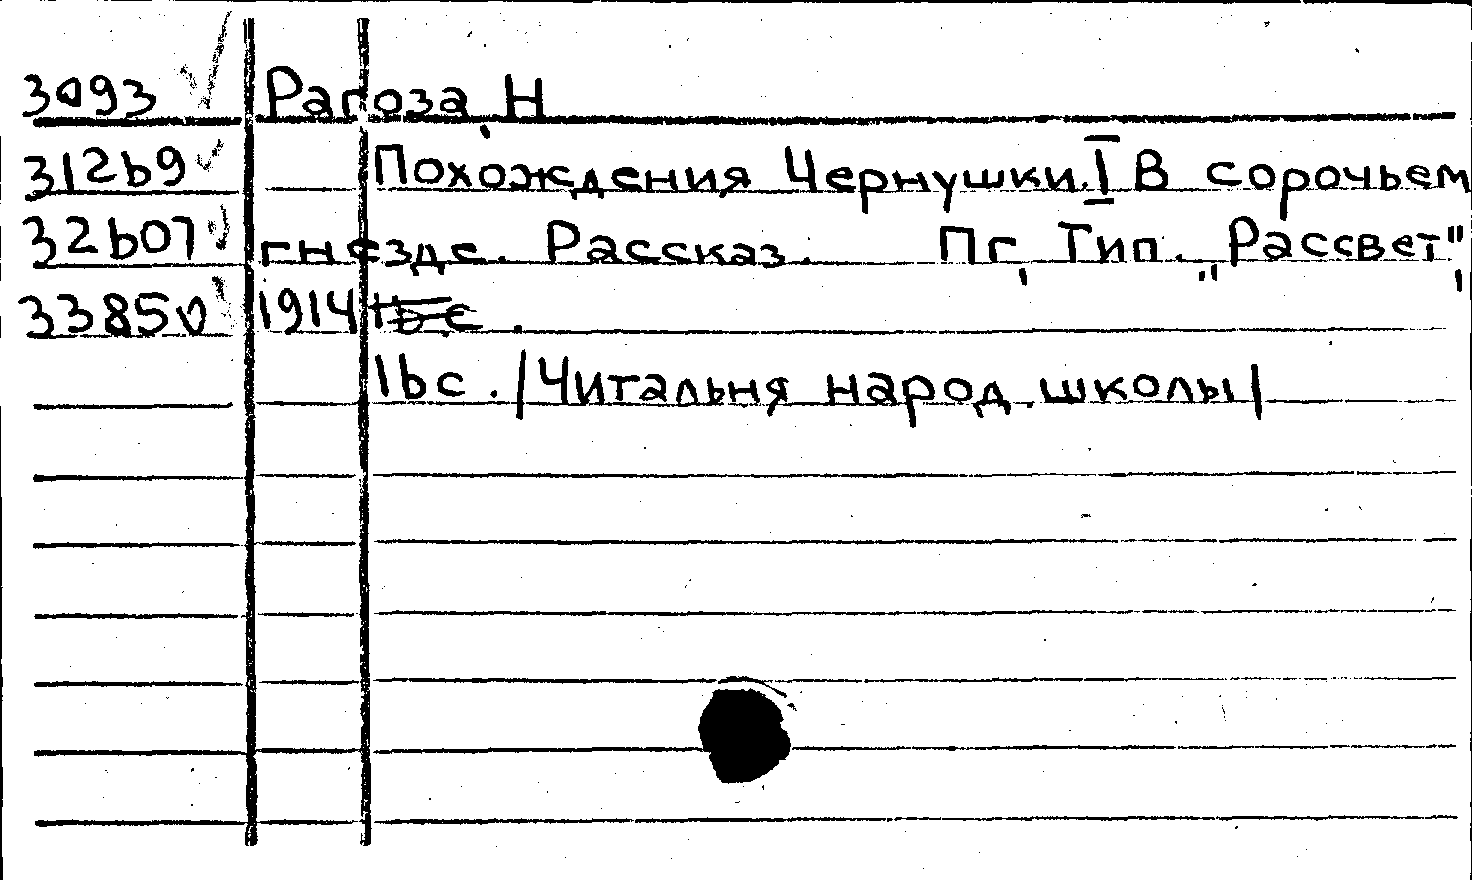 3093 Рагоза, Н
31269 Похождения Чернушки. I В сорочьем
32607 гнезде. Рассказ. Пг, Тип. "Рассвет",
33850 1914 16 с.
16с. /Читальня народ. школы/